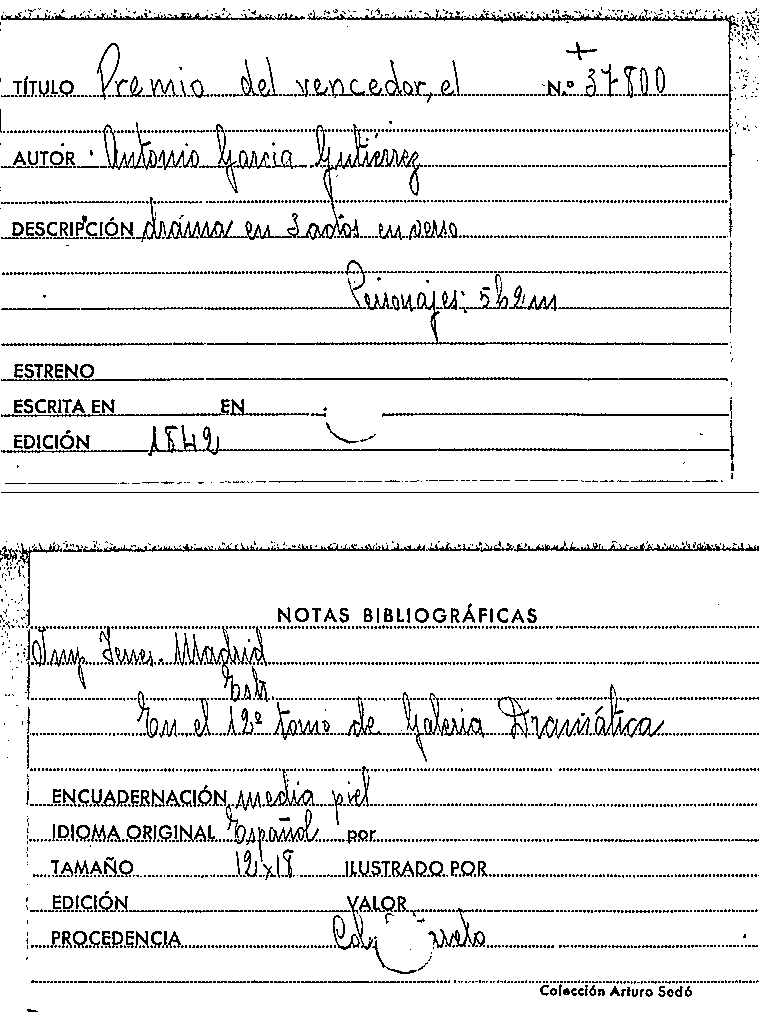 TÍTULO Premio del vencedor, el N.º 37800
AUTOR Antonio Garcia Gutiérrez
DESCRIPCIÓN drama en 3 actos en verso
Personajes: 5h2m
ESTRENO
ESCRITA EN EN
EDICIÓN 1842
NOTAS BIBLIOGRÁFICAS
Imp Yenes. Madrid
En el 12º tomo de Galeria Dramática
ENCUADERNACIÓN media piel
IDIOMA ORIGINAL Español por
TAMAÑO 12x18 ILUSTRADO POR
EDICIÓN VALOR
PROCEDENCIA
Colección Arturo Sedó